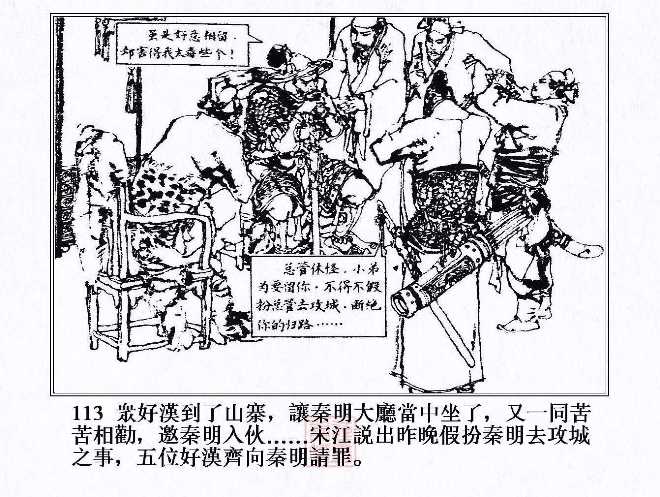 虽是好意相留．
却害得我太毒些个！
总管休怪．小弟
为要留你．不得不假
扮总管去攻城．断绝
你的归路……
113 眾好漢到了山寨，讓秦明大廳當中坐了，又一同苦
苦相勸，邀秦明入伙……宋江説出昨晚假扮秦明去攻城
之事，五位好漢齊向秦明請罪。